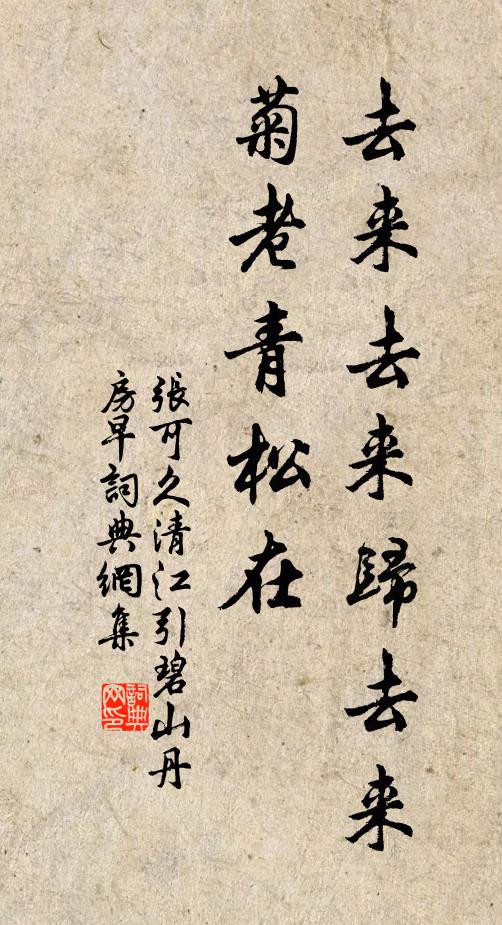 去来去来歸去来
菊老青松在
張可久清江引碧山丹
房早詞典網集
詞典网印